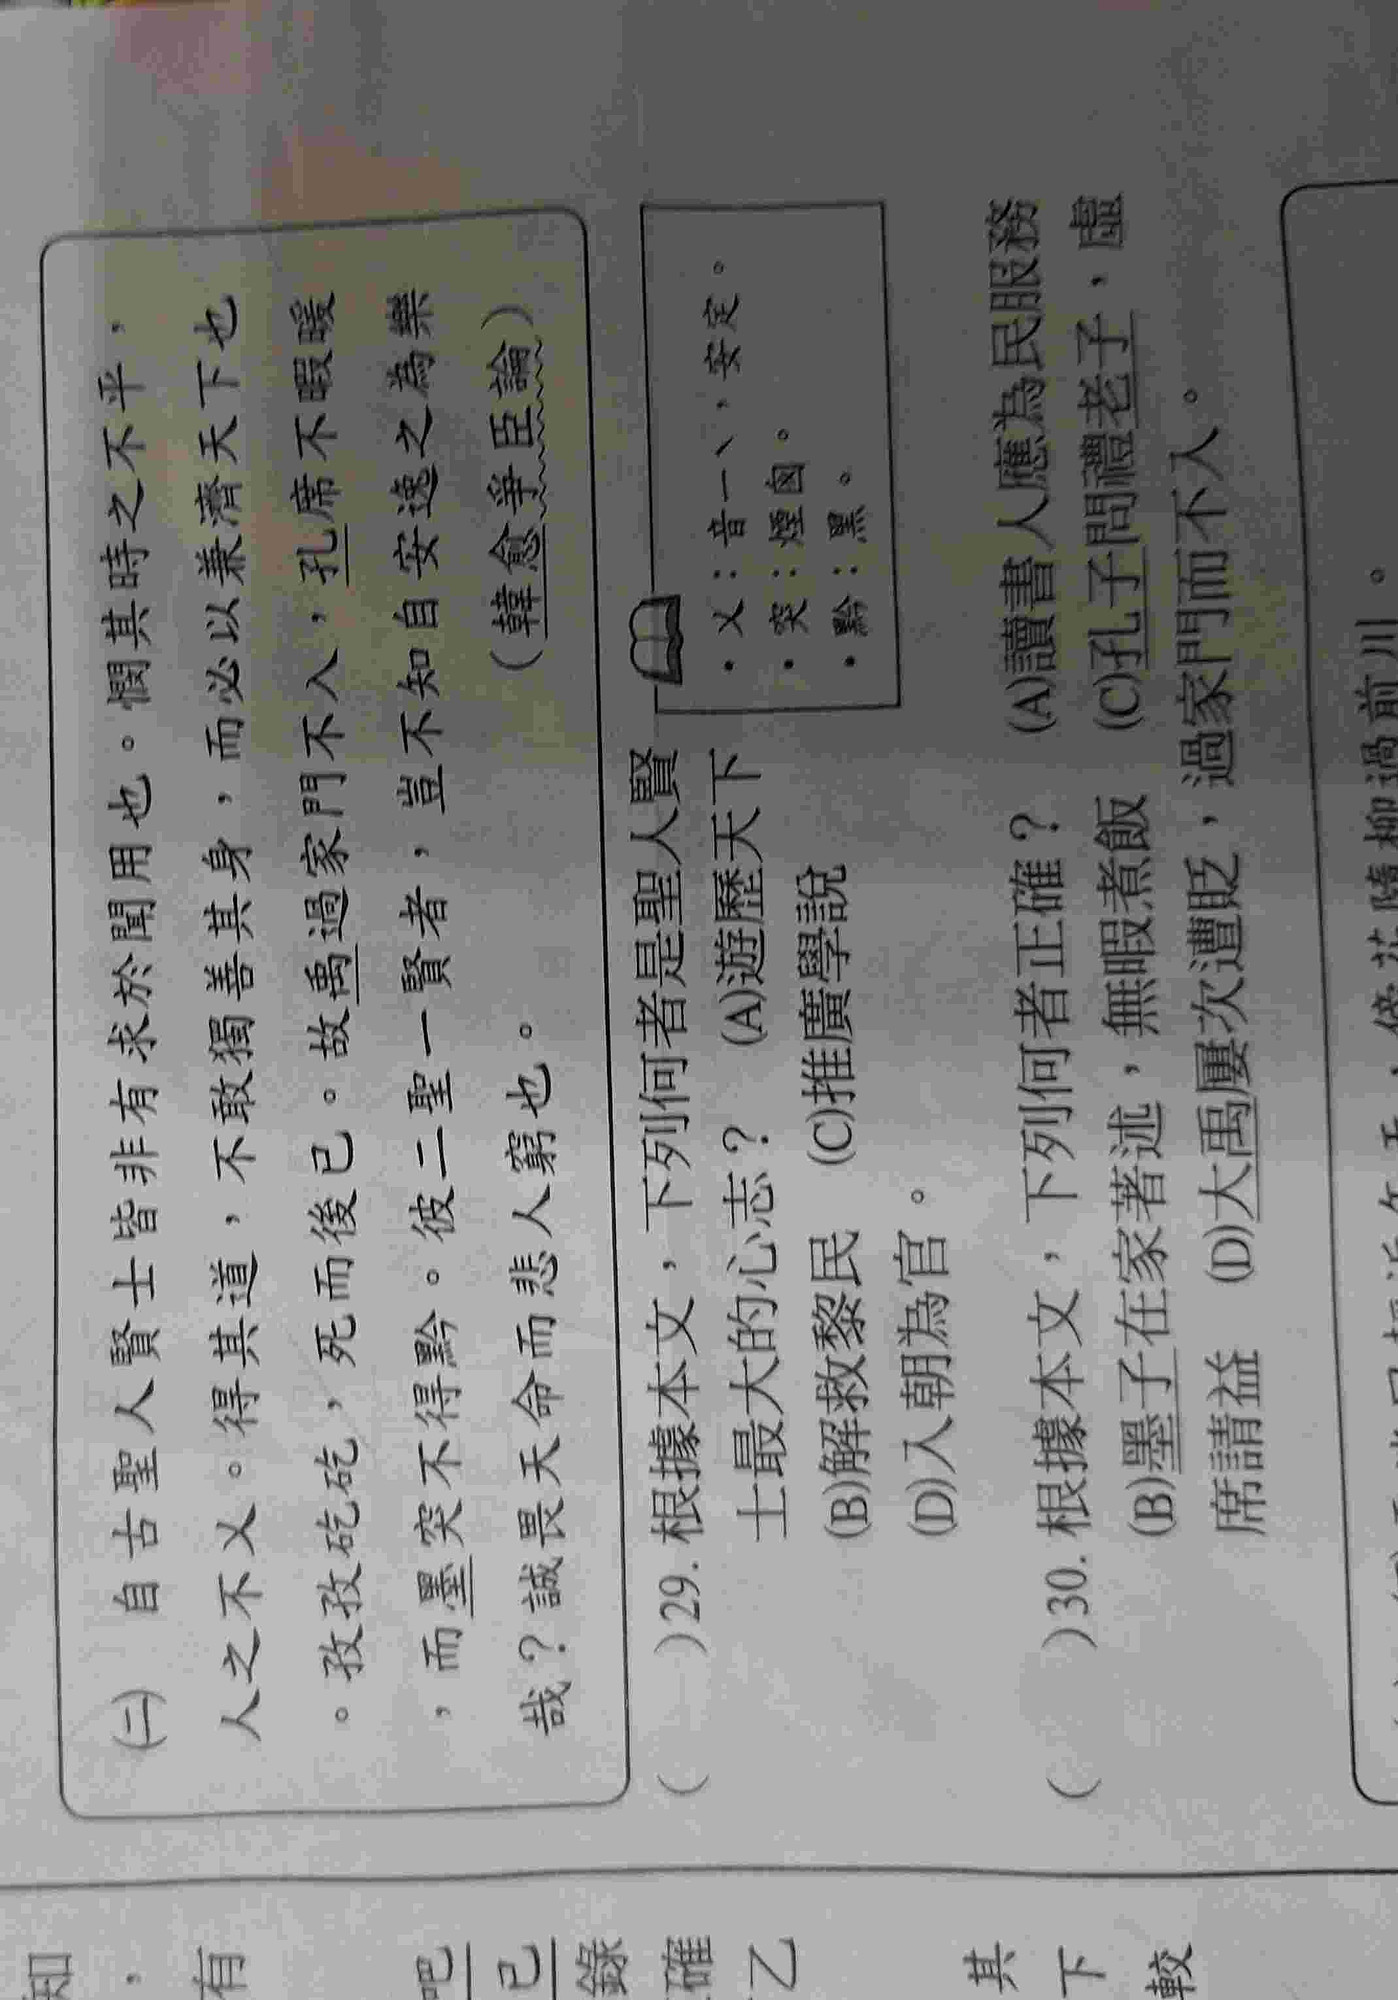 知
，
有
吧
己
錄
確
乙
其
下
較
㈡ 自古聖人賢士皆非有求於聞用也。憫其時之不平，
人之不乂。得其道，不敢獨善其身，而必以兼濟天下也
。孜孜矻矻，死而後已。故禹過家門不入，孔席不暇暖
，而墨突不得黔。彼二聖一賢者，豈不知自安逸之為樂
哉？誠畏天命而悲人窮也。（韓愈爭臣論）
( )29.根據本文，下列何者是聖人賢
士最大的心志？ (A)遊歷天下
(B)解救黎民 (C)推廣學說
(D)入朝為官。
•乂：音ㄧˋ，安定。
•突：煙囪。
•黔：黑。
( )30.根據本文，下列何者正確？ (A)讀書人應為民服務
(B)墨子在家著述，無暇煮飯 (C)孔子問禮老子，虛
席請益 (D)大禹屢次遭貶，過家門而不入。
隨柳過前川。